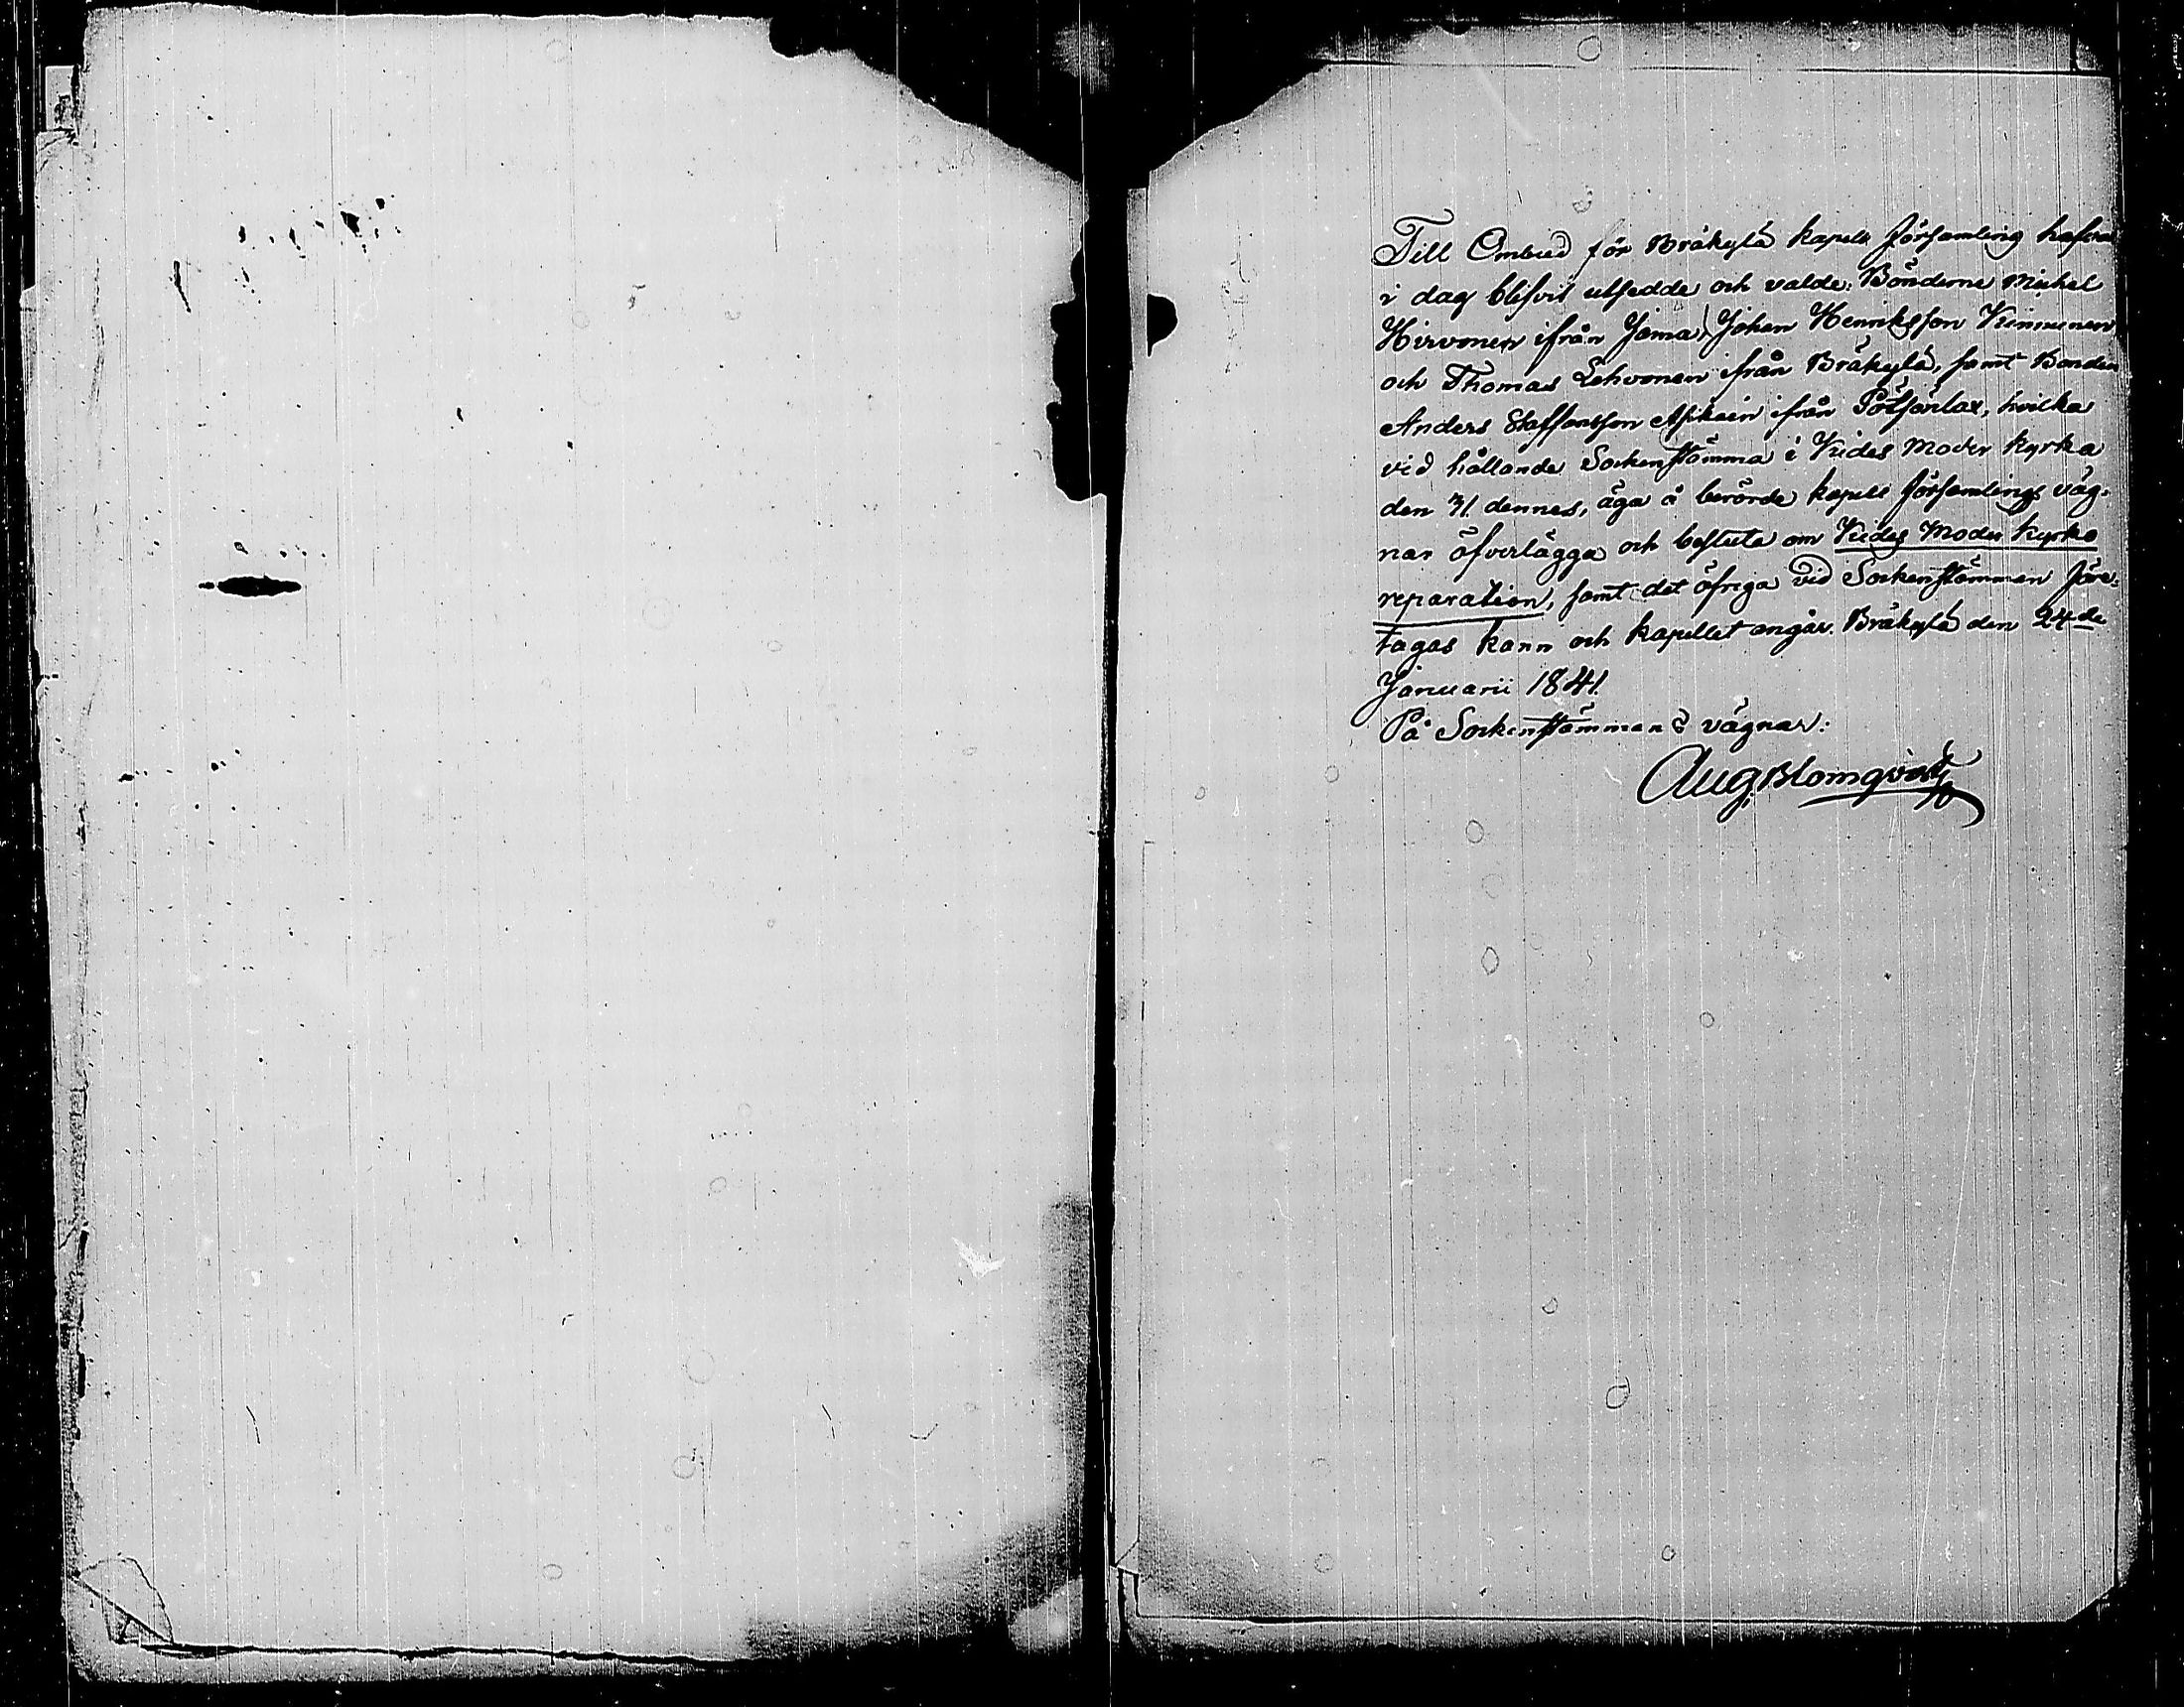 Till Ombud för Bräkylä kapells församling hafva
i dag blifvit utsedde och valde: Bönderne Michel
Hirvonen ifrån Jama, Johan Henriksson Kinnunen
och Thomas Lehvonen ifrån Bräkylä, samt Bonden
Anders Staffansson Asikain ifrån Potsönlax, hvilka
vid hållande Sockenstämma i Kides Moder kyrka
den 31. dennes, äga å berörde kapells församlings väg-
nar öfverlägga och besluta om Kides Moder kyrko
reparation, samt det öfriga vid Sockenstämman före-
tagas kann och kapellet angår. Bräkylä den 24de
Januarii 1841.
På Sockenstämmans vägnar:
Aug. Blomqvist